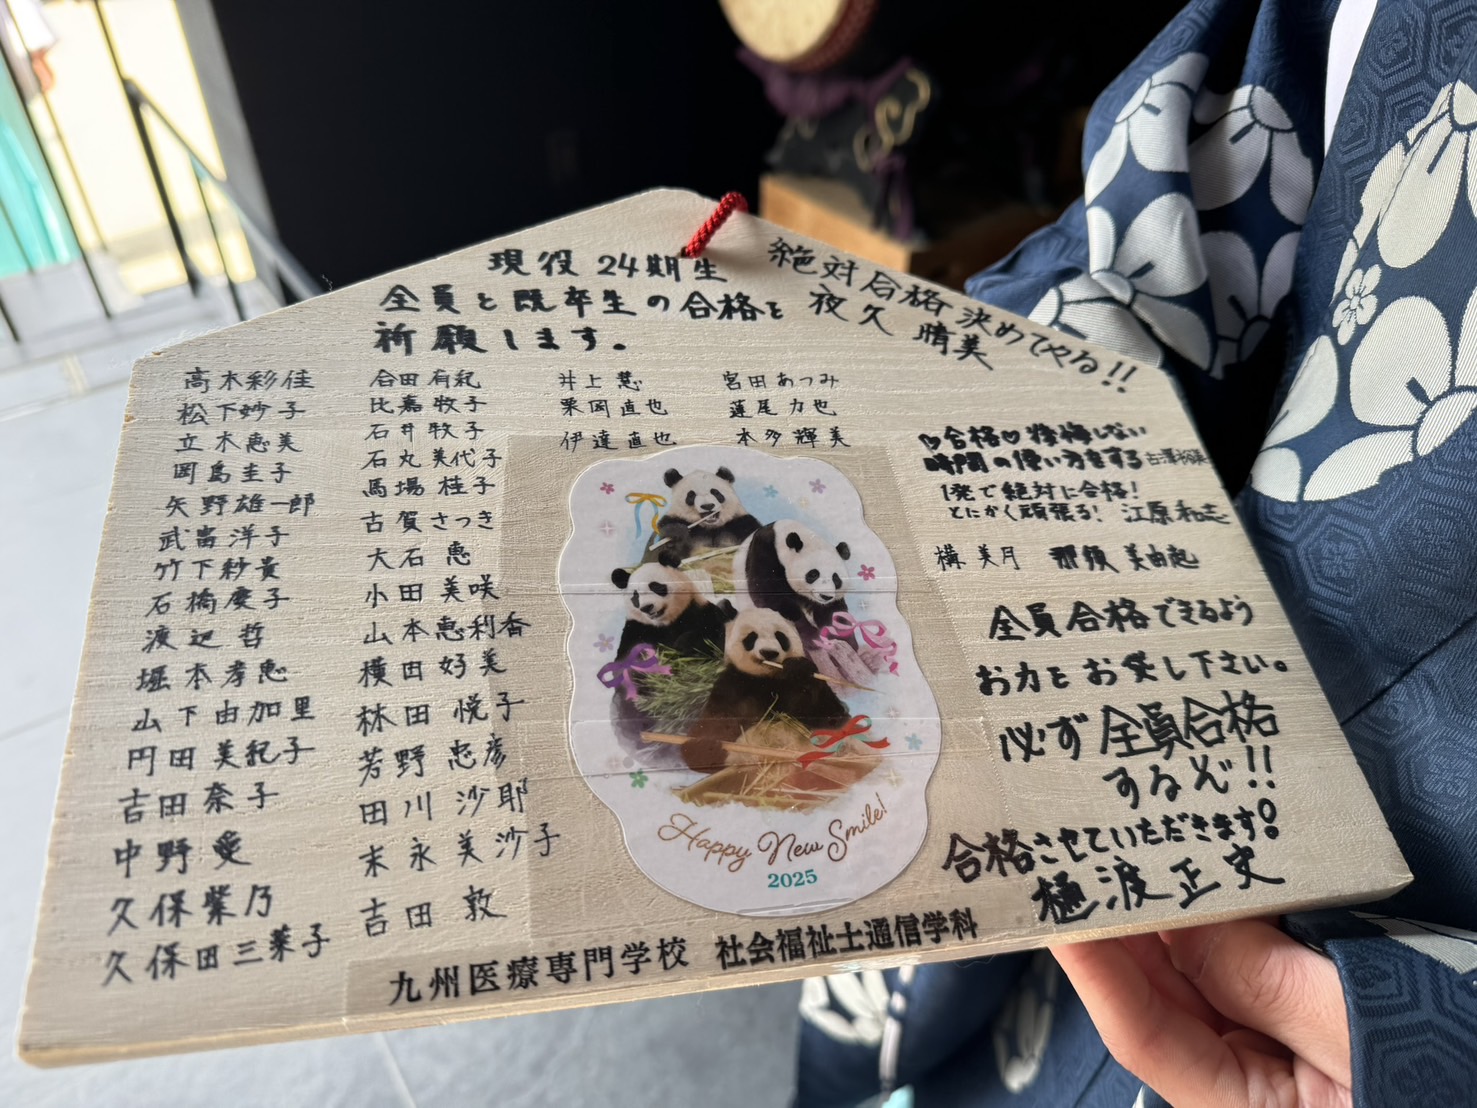 現役24期生
全員と既卒生の合格を
祈願します。
絶対合格決めてやる!!
夜久 晴美
高木彩佳
松下妙子
立木恵美
岡島圭子
矢野雄一郎
武富洋子
竹下紗貴
石橋慶子
渡辺哲
堀本孝恵
山下由加里
円田美紀子
吉田奈子
中野愛
久保紫乃
久保田三菜子
合田有紀
比嘉牧子
石井牧子
石丸美代子
馬場桂子
古賀さつき
大石恵
小田美咲
山本恵利香
横田好美
林田悦子
芳野忠彦
田川沙耶
末永美沙子
吉田敦
井上慧
栗岡直也
伊達直也
宮田あつみ
蓮尾力也
本多輝美
♡合格♡後悔しない
時間の使い方をする
1発で絶対に合格!
とにかく頑張る! 江原和志
構美月 那須美由起
全員合格できるよう
お力をお貸し下さい。
必ず全員合格
するぞ!!
合格させていただきます!
樋渡正史
Happy New Smile!
2025
九州医療専門学校 社会福祉士通信学科